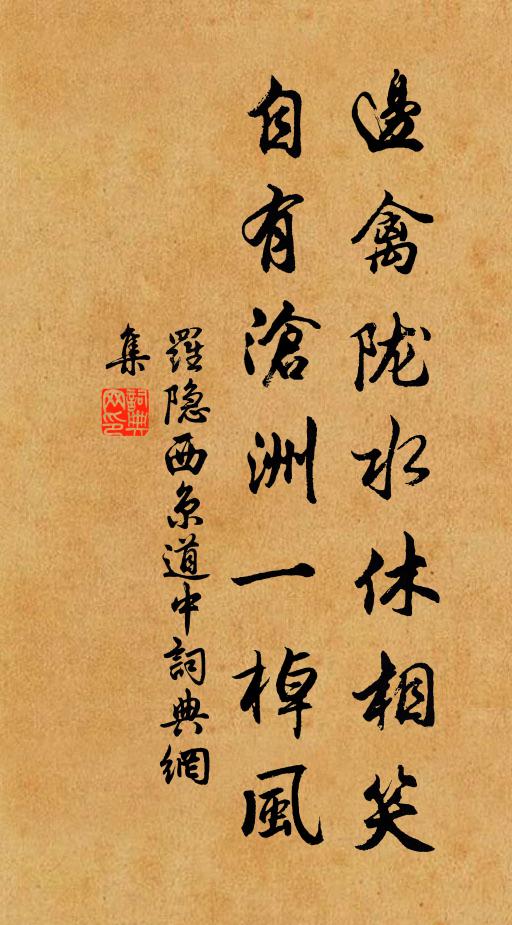 邊禽陇水休相笑
自有滄洲一棹風
羅隐西京道中詞典網
集
詞典
网印